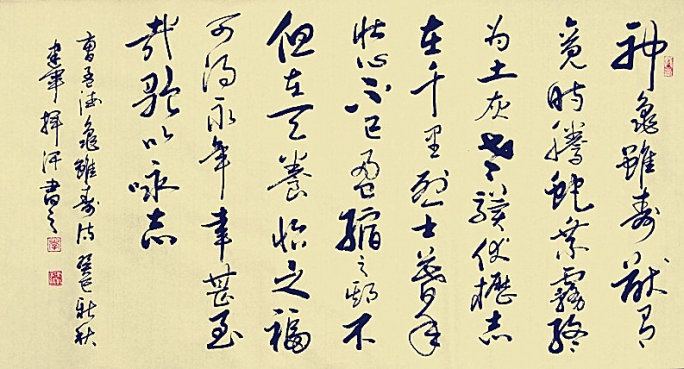 神龜雖壽猷有
竟時騰蛇乘霧終
为土灰老驥伏櫪志
在千里烈士暮年
壯心不已盈縮之期不
但在天養怡之福
可得永年幸甚至
哉歌以咏志
曹孟德龜雖壽诗 癸巳新秋
揮汗書之